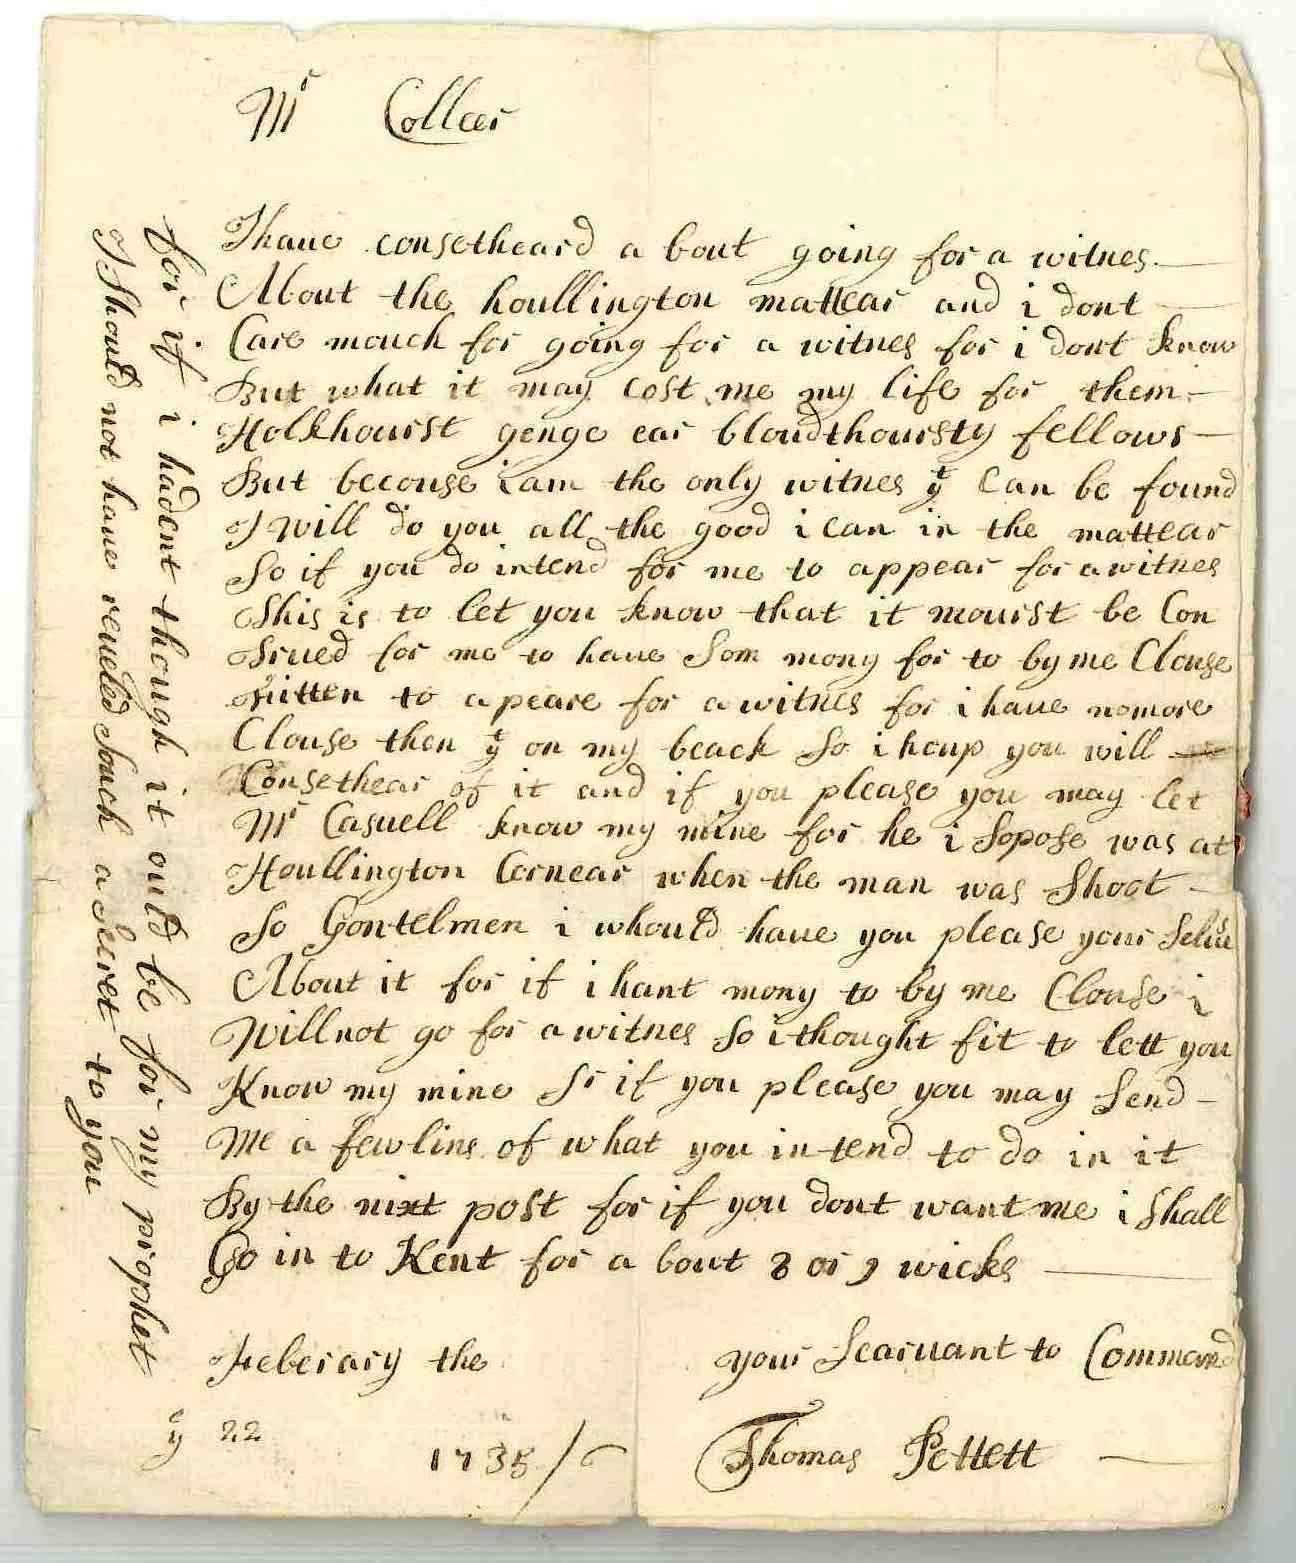 Mr Colleer
I haue consetheard a bout going for a witnes
About the houllington mattear and i dont
Care mouch for going for a witnes for i dont know
But what it may cost me my life for them
Holkhourst genge ear bloudthoursty fellows
But becouse i am the only witnes yt Can be found
I will do you all the good i can in the mattear
So if you do intend for me to appear for a witnes
This is to let you know that it mourst be Con
Srued for me to haue Som mony for to by me Clouse
fitten to a peare for a witnes for i haue nomore
Clouse then yt on my beack So i houp you will
Consethear of it and if you please you may let
Mr Casuell know my mine for he i Sopose was at
Houllington Cornear when the man was Shoot
So Gontelmen i whould haue you please your Selus
About it for if i hant mony to by me Clouse i
Will not go for a witnes So i thought fit to lett you
Know my mine So if you please you may Send
Me a few line of what you intend to do in it
By the nixt post for if you dont want me i Shall
Go in to Kent for a bout 8 or 9 wicks
Feberary the your Searuant to Command
ye 22 1735/6 Thomas Pettett
for if i hadent though it ould be for my prophet
I Should not haue reueled Souch a Secret to you